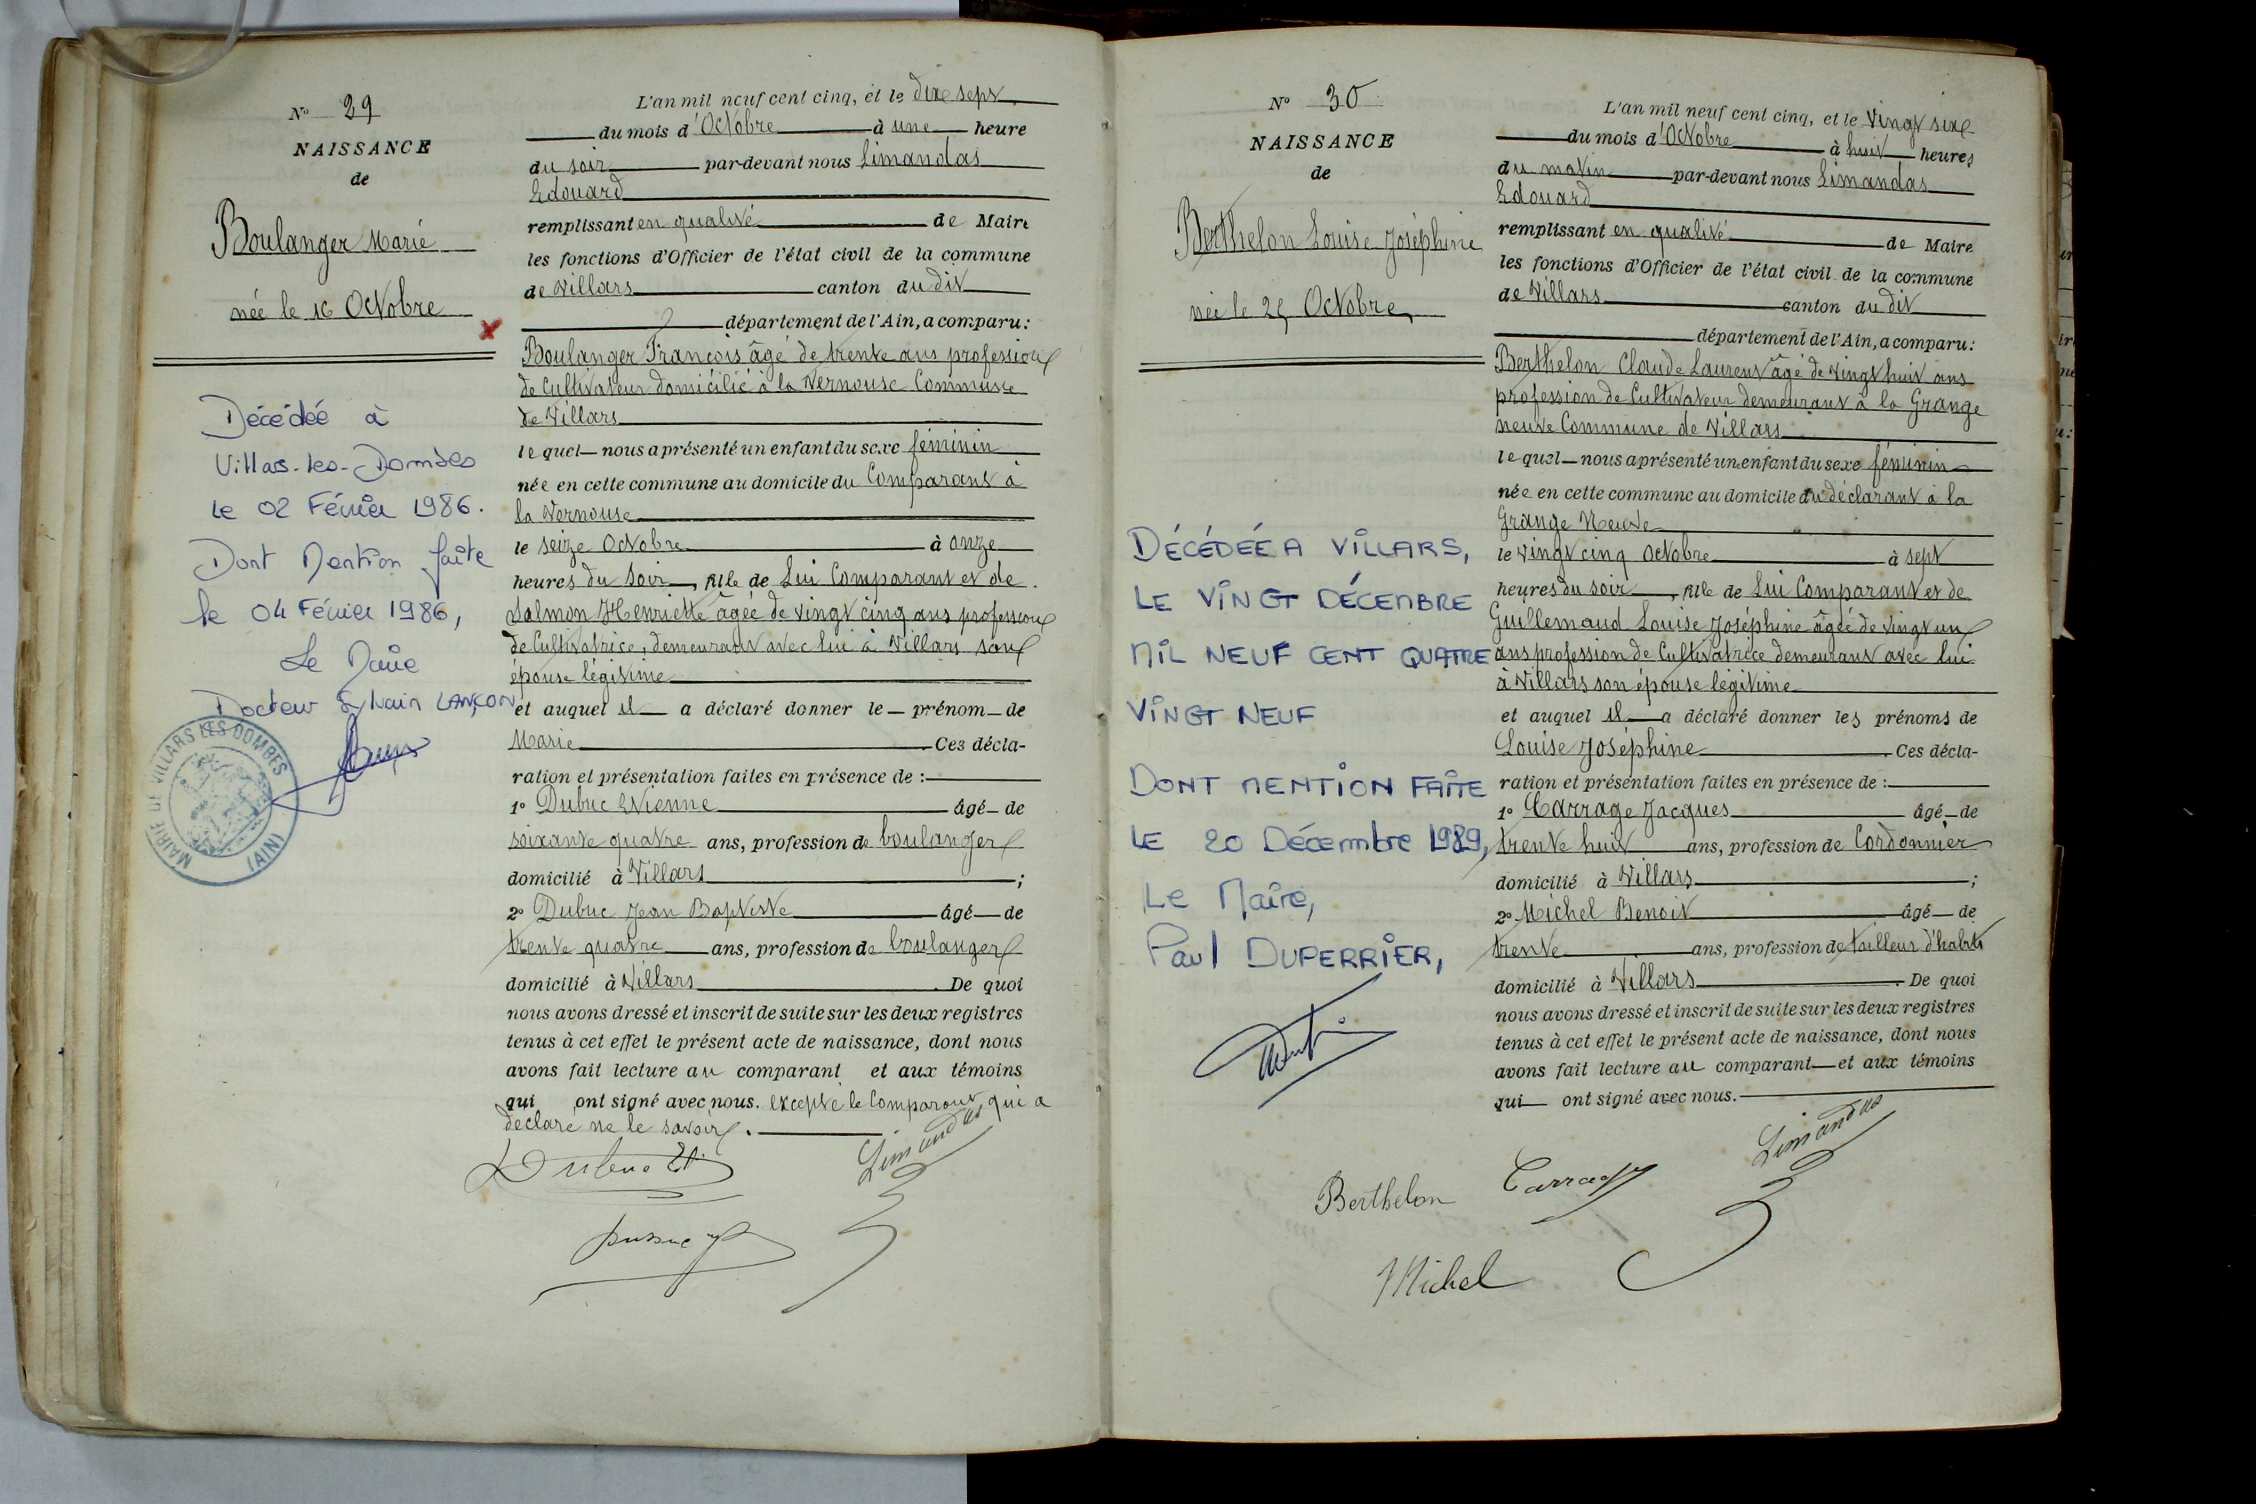 N° 29
NAISSANCE
de
Boulanger Marie
née le 16 Octobre
Décédée à
Villars-les-Dombes
le 02 Février 1986.
Dont Mention faite
le 04 Février 1986,
Le Maire
Docteur Sylvain LANÇON
MAIRIE DE VILLARS LES DOMBES
(AIN)
L'an mil neuf cent cinq, et le dix sept
du mois d'Octobre à une heure
du soir par-devant nous Limandas
Edouard
remplissant en qualité de Maire
les fonctions d'Officier de l'état civil de la commune
de Villars canton du dit
département de l'Ain, a comparu:
Boulanger François âgé de trente ans profession
de Cultivateur domicilié à la Vernouse Commune
de Villars
lequel nous a présenté un enfant du sexe féminin
née en cette commune au domicile du Comparant à
la Vernouse
le seize Octobre à onze
heures du soir, fille de Lui Comparant et de
Salmon Henriette âgée de vingt cinq ans profession
de Cultivatrice, demeurant avec lui à Villars son
épouse légitime
et auquel il a déclaré donner le prénom de
Marie Ces décla-
ration et présentation faites en présence de :
1° Dubuc Etienne âgé de
soixante quatre ans, profession de boulanger
domicilié à Villars ;
2° Dubuc Jean Baptiste âgé de
trente quatre ans, profession de boulanger
domicilié à Villars De quoi
nous avons dressé et inscrit de suite sur les deux registres
tenus à cet effet le présent acte de naissance, dont nous
avons fait lecture au comparant et aux témoins
qui ont signé avec nous. excepté le Comparant qui a
déclaré ne le savoir.
Dubuc Et.
Limandas
N° 30
NAISSANCE
de
Berthelon Louise Joséphine
née le 25 Octobre
DÉCÉDÉE A VILLARS,
LE VINGT DÉCEMBRE
MIL NEUF CENT QUATRE
VINGT NEUF
DONT MENTION FAITE
LE 20 Décembre 1989,
LE Maire,
Paul DUPERRIER,
L'an mil neuf cent cinq, et le vingt six
du mois d'Octobre à huit heures
du matin par-devant nous Limandas
Edouard
remplissant en qualité de Maire
les fonctions d'Officier de l'état civil de la commune
de Villars canton du dit
département de l'Ain, a comparu:
Berthelon Claude Laurent âgé de vingt huit ans
profession de Cultivateur demeurant à la Grange
neuve Commune de Villars
lequel nous a présenté un enfant du sexe féminin
née en cette commune au domicile du déclarant à la
Grange Neuve
le vingt cinq octobre à sept
heures du soir, fille de Lui Comparant et de
Guillemaud Louise Joséphine âgée de vingt un
ans profession de Cultivatrice demeurant avec lui
à Villars son épouse légitime
et auquel il a déclaré donner les prénoms de
Louise Joséphine Ces décla-
ration et présentation faites en présence de :
1° Carrage Jacques âgé de
trente huit ans, profession de Cordonnier
domicilié à Villars ;
2° Michel Benoit âgé de
trente ans, profession de tailleur d'habits
domicilié à Villars De quoi
nous avons dressé et inscrit de suite sur les deux registres
tenus à cet effet le présent acte de naissance, dont nous
avons fait lecture au comparant et aux témoins
qui ont signé avec nous.
Limandas
Berthelon
Michel